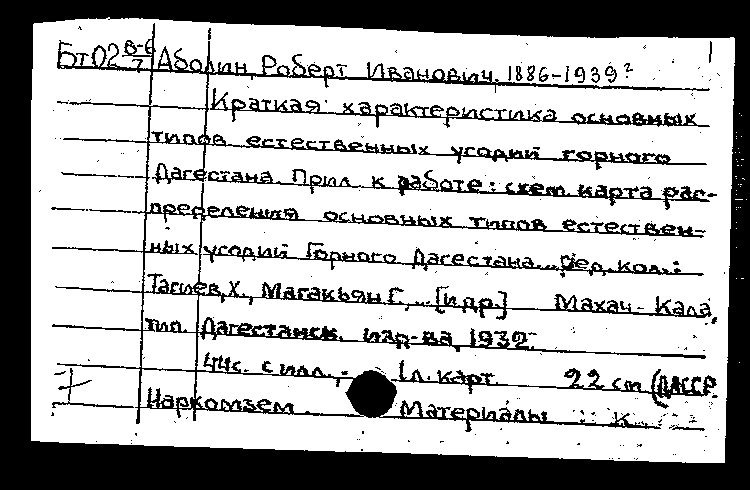 Бт02 В-6/7 Аболин, Роберт Иванович. 1886-1939?
Краткая характеристика основных
типов естественных угодий горного
Дагестана. Прил. к работе: схем. карта рас-
пределения основных типов естествен-
ных угодий Горного Дагестана... Ред. кол.:
Тагиев, Х., Магакьян Г., ... [и др.] Махач-Кала,
тип. Дагестанск. изд-ва, 1932.
44с. с илл., 1 л. карт. 22 см (ДАССР.
Наркомзем. Материалы к